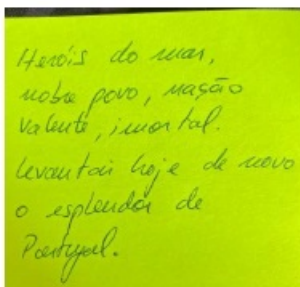 Heróis do mar,
nobre povo, nação
valente, imortal.
Levantai hoje de novo
o esplendor de
Portugal.